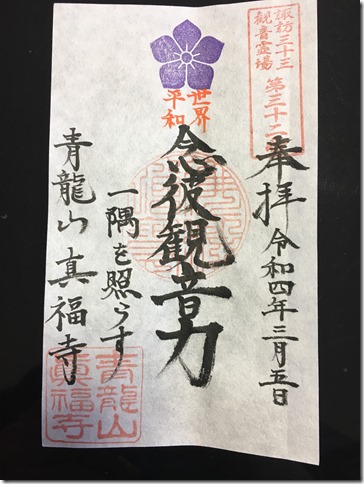 諏訪三十三
観音霊場
第三十二
奉拝
令和四年三月五日
世界
平和
念彼観音力
一隅を照らす
青龍山真福寺
青龍山
眞福寺